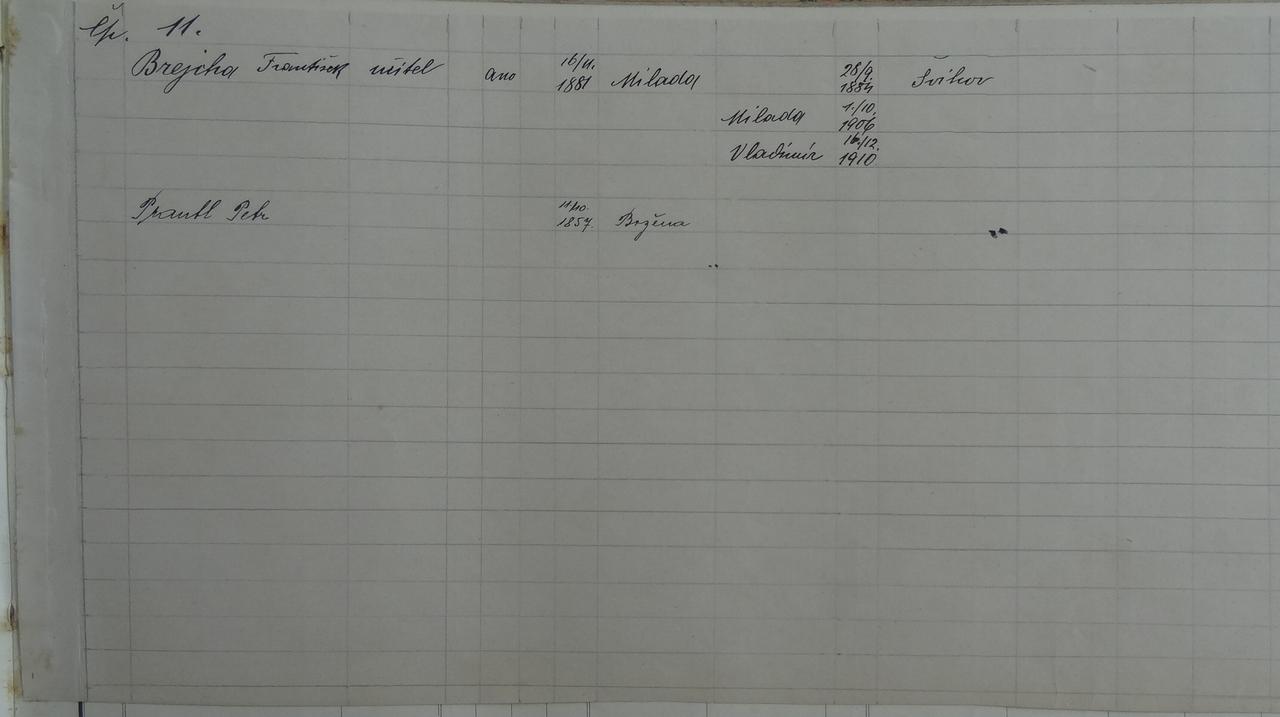 Čp. 11.
Brejcha František učitel ano 16/11. 1881 Milada 28/9. 1884 Švihov
Milada 1./10. 1906
Vladimír 16/12. 1910
Prantl Petr 11/10. 1857. Božena